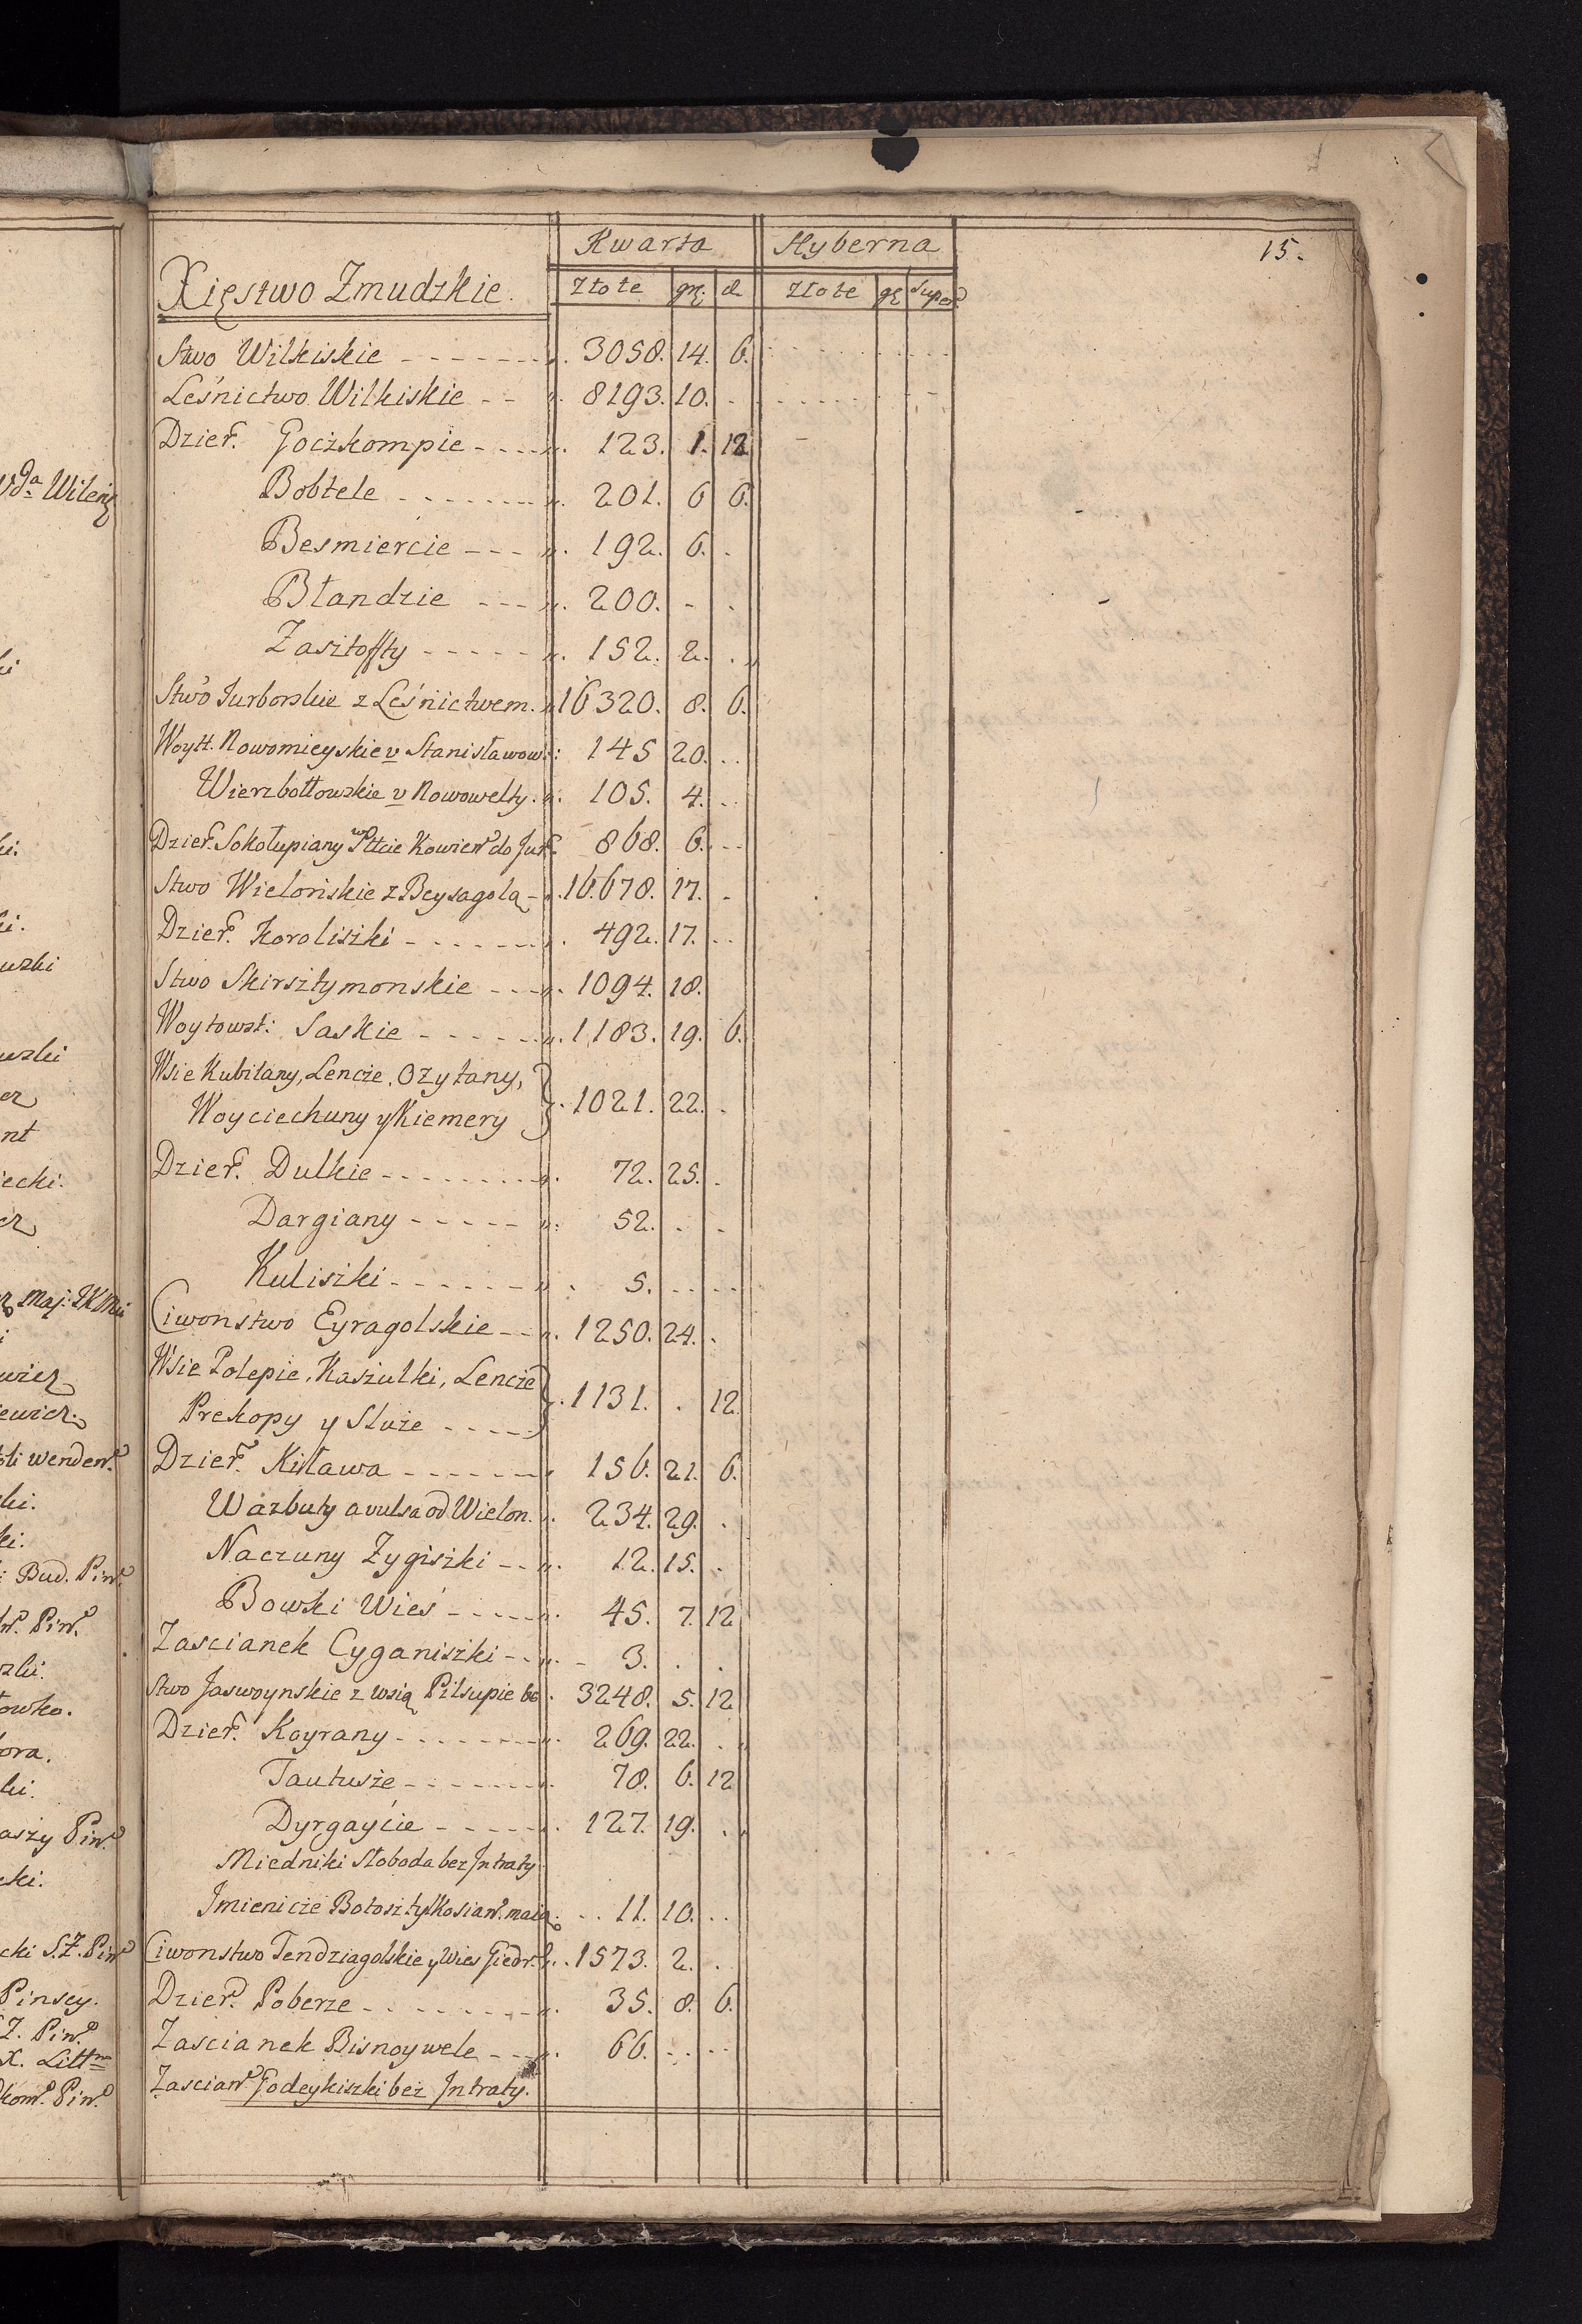 15.
Xięstwo Zmudzkie.
Kwarta
Hyberna
Złote gr: d.
Złote gr Super
Stwo Wilkiskie - - - - - - - „. 3058. 14. 6.
Leśnictwo Wilkiskie - - „. 8193. 10. -
Dzier. Goczkompie - - - - „. 123. 1. 12
Bobtele - - - - - - - „. 201. 6 6.
Besmiercie - - - „. 192. 6. .
Błandzie - - - „. 200. - .
Zasztofty - - - - - „. 152. 2. .
Stwo Jurborskie z Leśnictwem. „ 16320. 8. 6.
Woytt. Nowomieyskie v Stanisławow: 145 20. . .
Wierzbołłowskie v Nowowelty. „. 105. 4. . .
Dzier. Sokołupiany w Pttcie Kowień do Jur. 868. 6. - -
Stwo Wielońskie z Beysagolą - „. 16.678. 17. .
Dzier. Koroliszki - - - - - - „. 492. 17. . .
Stwo Skirsztymonskie - - - „. 1094. 18.
Woytowst: Saskie - - - - - „. 1183. 19. 6.
Wsie Kubilany, Lencze, Ozytany,
Woyciechuny y Kiemery } . 1021. 22. .
Dzier. Dulkie - - - - - - - - „. 72. 25. .
Dargiany - - - - - „. 52. . .
Kuliszki - - - - - - „ . 5. - - - -
Ciwonstwo Eyragolskie - - „. 1250. 24. .
Wsie Polepie, Kaszulki, Lencze
Prekopy y Sluże - - - - } . 1131. . 12.
Dzier. Kisława - - - - - - - 156. 21. 6.
Wazbuty avulsa od Wielon. „. 234. 29. .
Naczuny Zygiszki - - „. 12. 15. .
Bowski Wieś - - - - - „. 45. 7. 12
Zascianek Cyganiszki - - „. - 3. . .
Stwo Jaswoynskie z wsią Pilsupie . 3248. 5. 12
Dzier. Koyrany - - - - - - - „. 269. 22. .
Tautusze - - - - - - - . 78. 6. 12
Dyrgaycie - - - - - . 127. 19. .
Miedniki Słoboda bez Intraty.
Imienicze Botosz tylko sian. maią. . . 11. 10. . .
Ciwonstwo Tendziagolskie y Wies Giedr. . . 1573. 2. .
Dzier. Poberze - - - - - - - - „. 35. 8. 6.
Zascianek Bisnoywele - - - „. 66. - . - -
Zascian. Godeykiszki bez Intraty.
Wda Wileń
Maj: JKMci
wicz
ewicz.
Wenden.
Bud. Pin.
Pin.
owko.
aszy Pin.
cki S.Z. Pin
Pinsey.
Z. Pin.
X. Litt
kom. Pin.